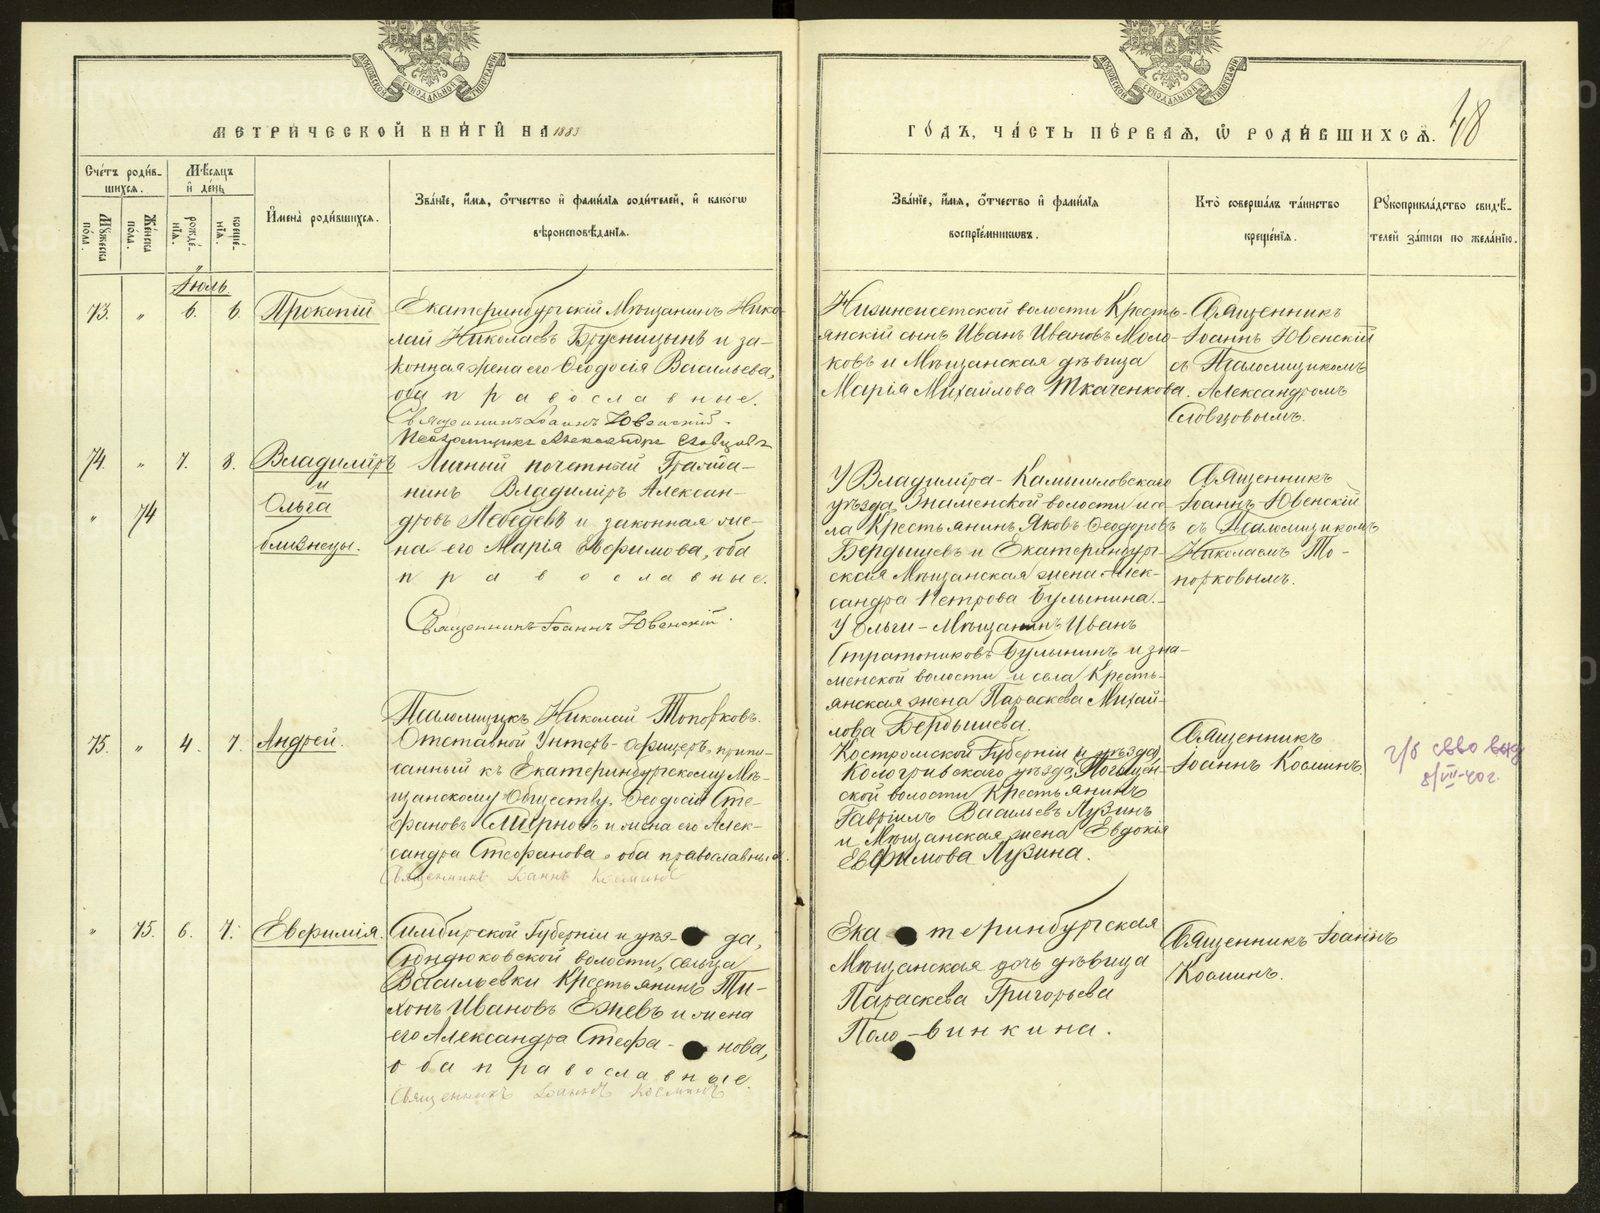 МЕТРИЧЕСКОЙ КНИГИ НА 1883
ГОДЪ, ЧАСТЬ ПЕРВАЯ, Ѡ РОДИВШИХСЯ.
48
Счетъ родив-
шихся.
Мѣсяцъ
и день
Мужеска
пола.
Женска
пола.
рожде-
нія.
креще-
нія.
Имена родившихся.
Званіе, имя, отчество и фамилія родителей, и какогѡ
вѣроисповѣданія.
Званіе, имя, отчество и фамилія
воспріемниковъ.
Кто совершалъ таинство
крещенія.
Рукоприкладство свидѣ-
телей записи по желанію.
Іюль.
73. " 6. 6. Прокопій
Екатеринбургскій Мѣщанинъ Нико-
лай Николаевъ Брусницынъ и за-
конная жена его Ѳеодосія Васильева,
оба православные.
Священникъ Іоаннъ Ювенскій.
Псаломщикъ Александръ Словцовъ
Нижнеисетской волости Кресть-
янскій сынъ Иванъ Ивановъ Моло-
ковъ и Мѣщанская дѣвица
Марія Михайлова Ткаченкова.
Священникъ
Іоаннъ Ювенскій
съ Псаломщикомъ
Александромъ
Словцовымъ.
74. " 7. 8. Владиміръ
и
" 74 Ольга
близнецы.
Личный почетный Гражда-
нинъ Владиміръ Алексан-
дровъ Лебедевъ и законная же-
на его Марія Евфимова, оба
православные.
Священникъ Іоаннъ Ювенскій.
Псаломщикъ Николай Топорковъ.
У Владиміра - Камышловскаго
уѣзда, Знаменской волости и се-
ла Крестьянинъ Яковъ Ѳеодоровъ
Бердышевъ и Екатеринбург-
ская Мѣщанская жена Алек-
сандра Петрова Булынина. -
У Ольги - Мѣщанинъ Иванъ
Стратониковъ Булынинъ и зна-
менской волости и села Кресть-
янская жена Параскева Михай-
лова Бердышева.
Священникъ
Іоаннъ Ювенскій
съ Псаломщикомъ
Николаемъ То-
порковымъ.
75. " 4. 7. Андрей.
Отставной Унтеръ-офицеръ, припи-
санный къ Екатеринбургскому Мѣ-
щанскому Обществу, Ѳеодосій Сте-
фановъ Смирновъ и жена его Алек-
сандра Стефанова, оба православные.
Священникъ Іоаннъ Косминъ
Костромской Губерніи и уѣзда
Кологривскаго уѣзда,
ской волости Крестьянинъ
Гавріилъ Васильевъ Лузинъ
и Мѣщанская жена Евдокія
Евфимова Лузина.
Священникъ
Іоаннъ Косминъ.
8/VII-40г.
" 75. 6. 7. Евфимія.
Симбирской Губерніи и уѣз- да,
Сюндюковской волости, сельца
Васильевки Крестьянинъ Ти-
хонъ Ивановъ Ежевъ и жена
его Александра Стефа- нова,
оба православные.
Священникъ Іоаннъ Косминъ
Ека теринбургская
Мѣщанская дочь дѣвица
Параскева Григорьева
Поло-винкина.
Священникъ Іоаннъ
Косминъ.